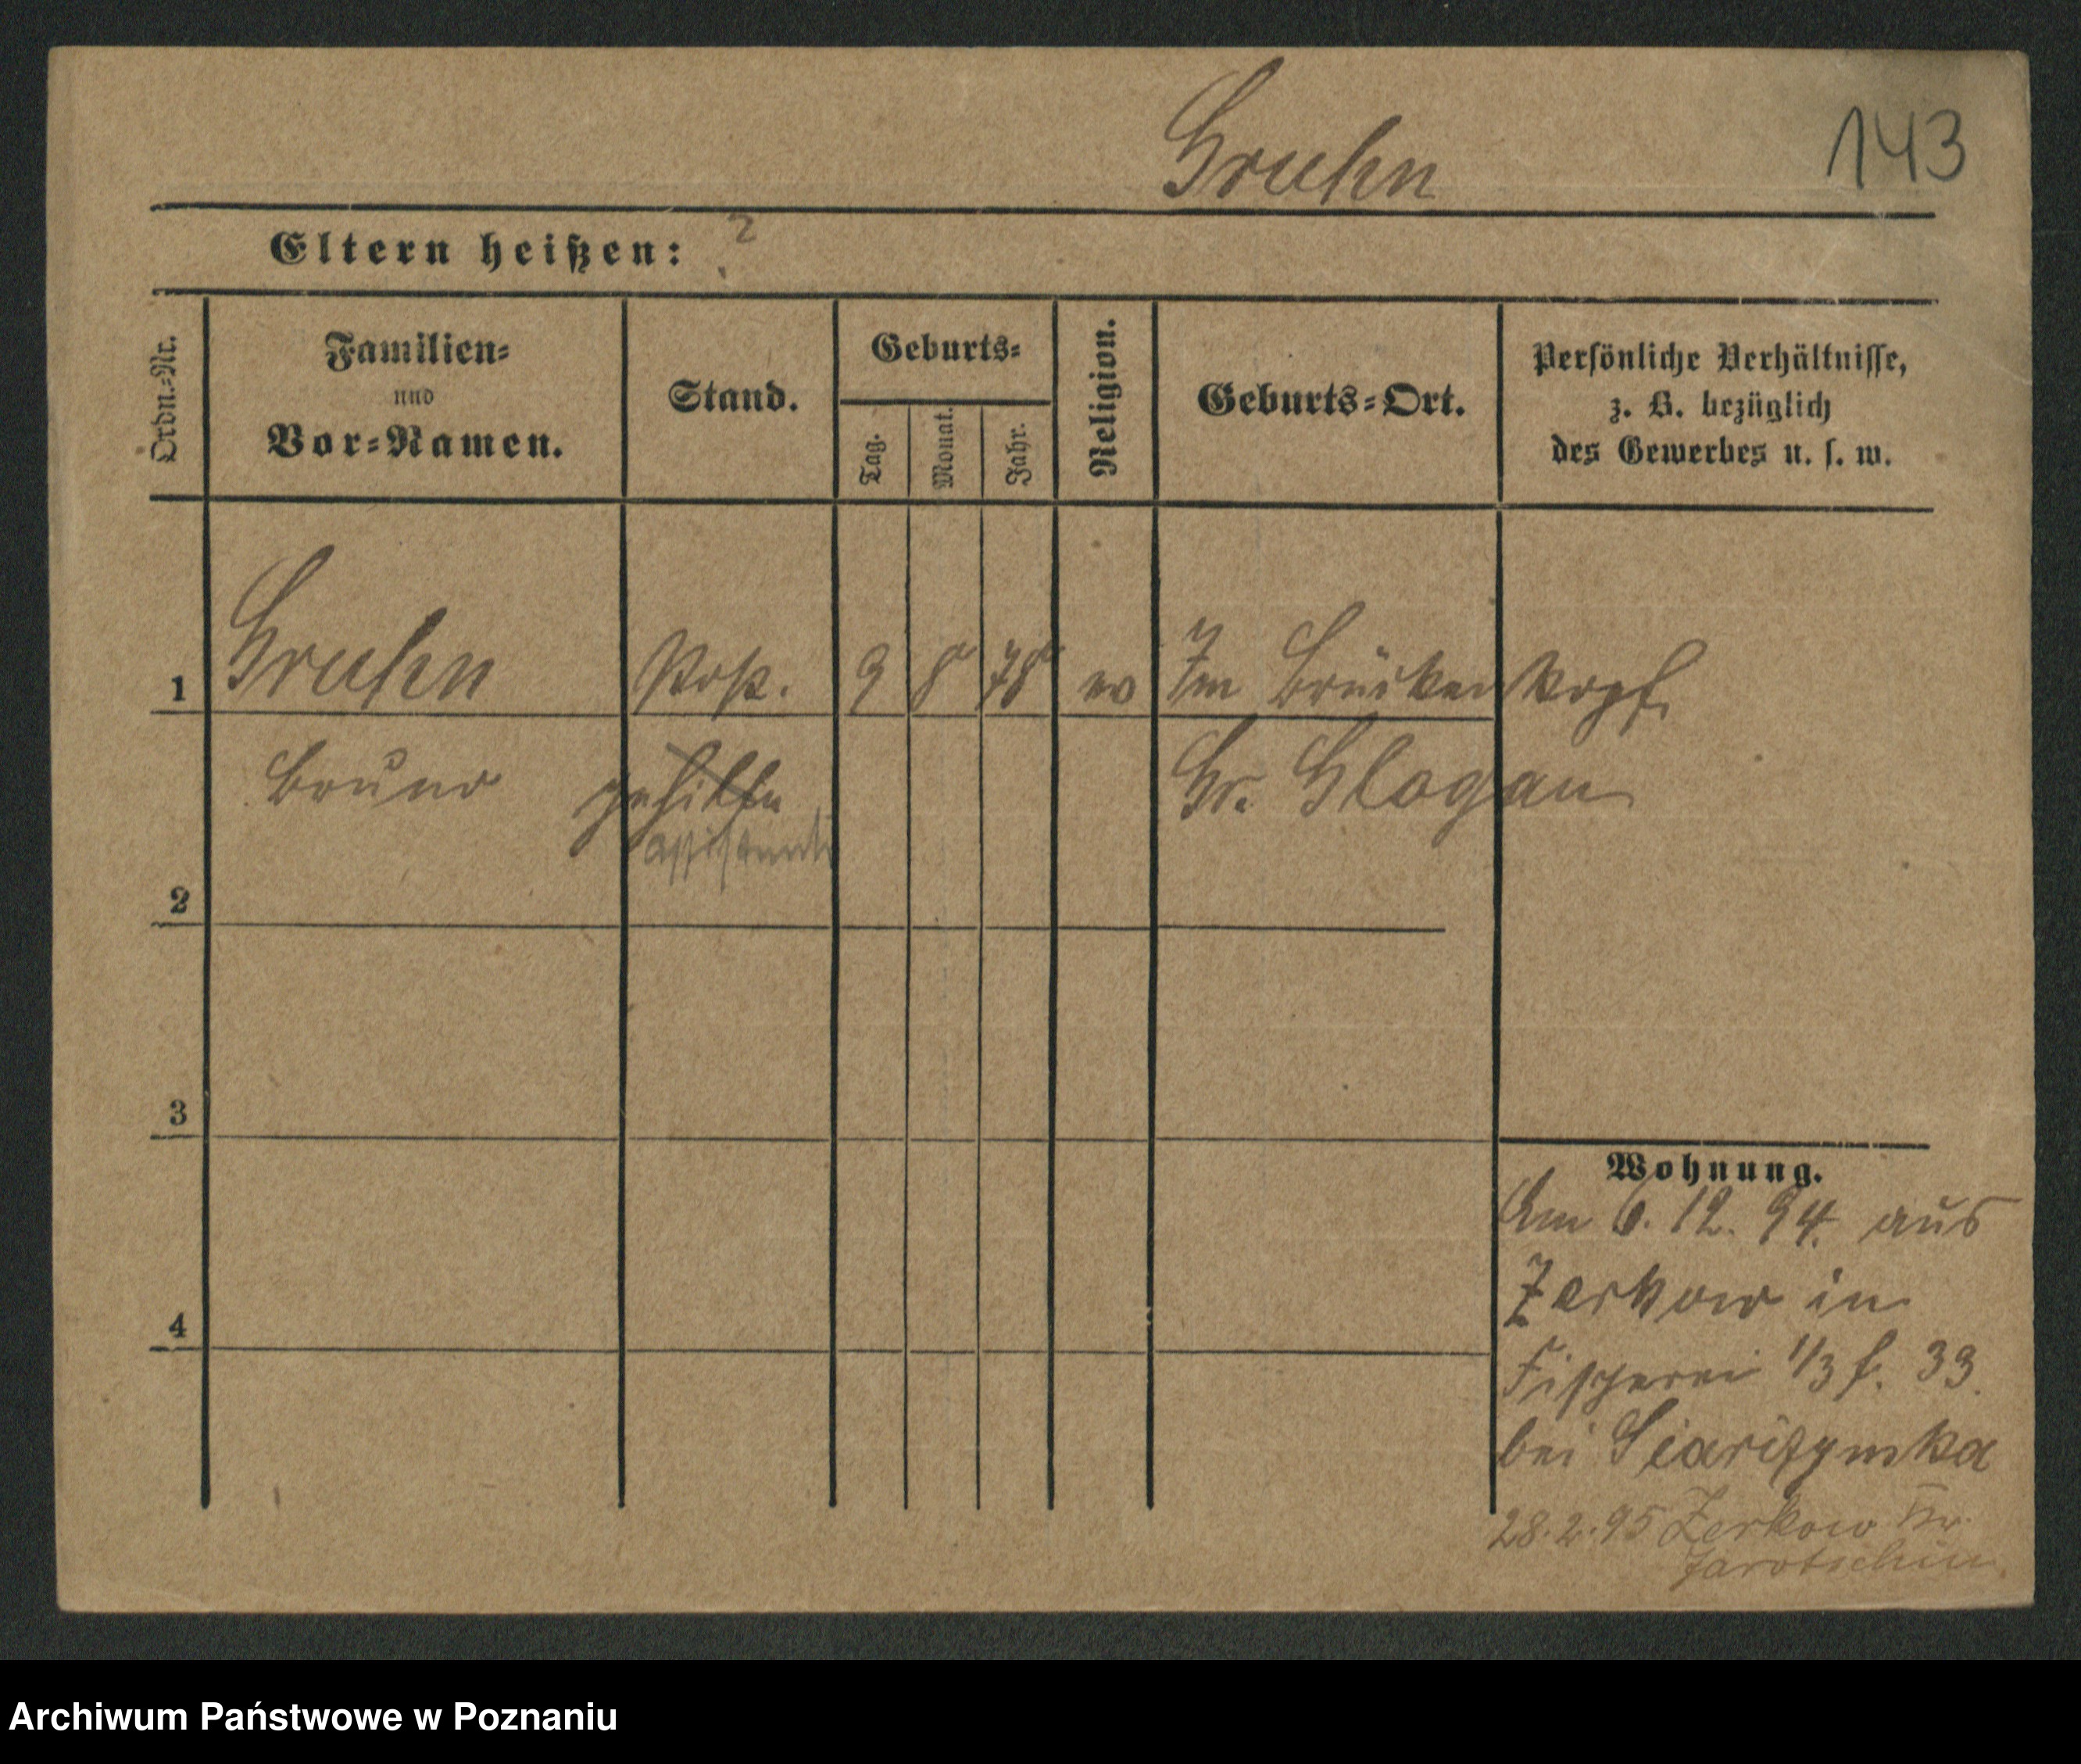 Gruhn
143
Eltern heißen: ?
Ordn.-Nr.
Familien-
und
Vor-Namen.
Stand.
Geburts-
Tag.
Monat.
Jahr.
Religion.
Geburts-Ort.
Persönliche Verhältnisse,
z. B. bezüglich
des Gewerbes u. s. w.
1 Gruhn Post. 9 8 78 ev Im Brückenkopf
Bruno gehilfe Gr. Glogau
assistent
2
3
4
Wohnung.
Am 6. 12. 94. aus
Zerkow in
Fischerei 1/3 f. 33.
bei
28.2.95 Zerkow Kr.
Jarotschin
Archiwum Państwowe w Poznaniu